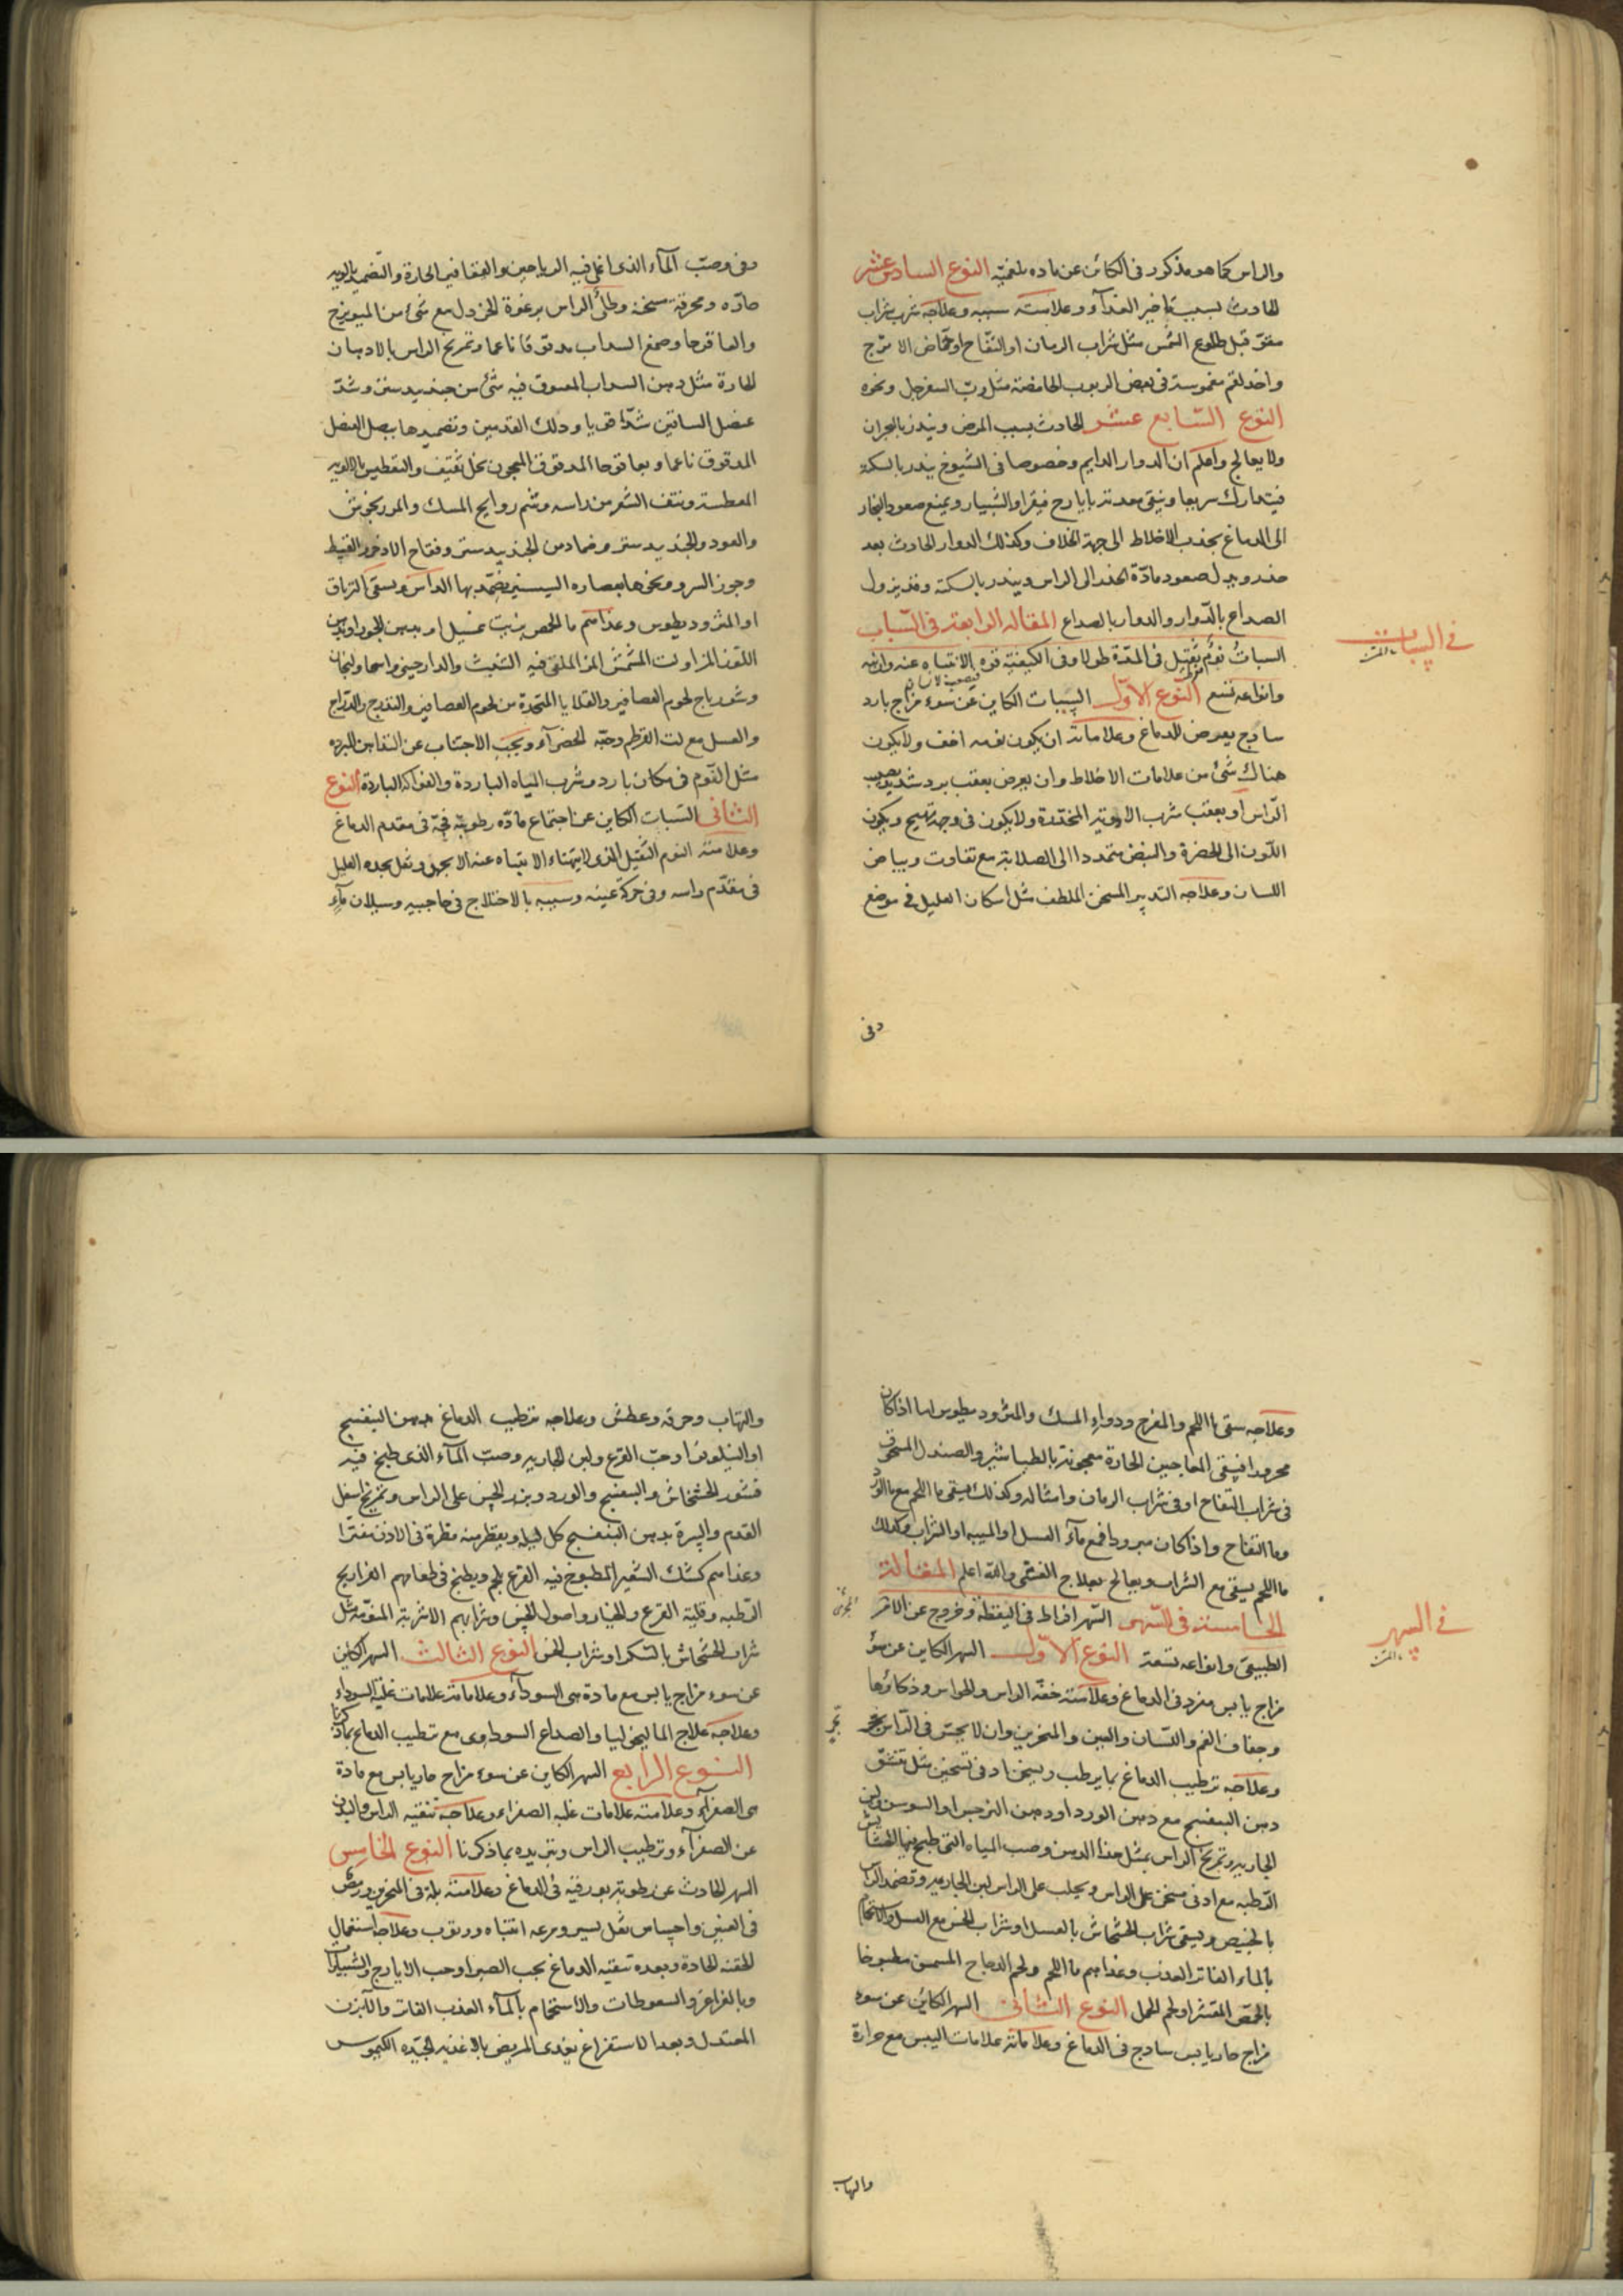 والراس كما هو مذكور فى الكائن عن ماده بلغميّة النوع السادس عشر
الحادث بسبب تاخير الغدآء وعلامته سببه وعلاجه شرب شراب
مقوّ قبل طلوع الشمس مثل شراب الرمان او التفّاح او حُمّاض الاترج
واخذ لقم مغموسة فى بعض الربوب الحامضة مثل ربّ السفرجل ونحوه
النوع السّابع عشر الحادث بسبب المرض وينذر بالبحران
ولا يعالج واعلم ان الدوار الدايم وخصوصا فى الشيوخ ينذر بالسكتة
فيتدارك سريعا وينقى معدته بايارج فيقرا والشبيار ويمنع صعود البخار
الى الدماغ بجذب الاخلاط الى جهة الخلاف وكذلك الدوار الحادث بعد
خدر ويدل صعود مادّة الخدر الى الراس وينذر بالسكتة وقد يزول
الصداع بالدّوار والدوار بالصداع المقالة الرابعة فى السّبات
فى السبات
السباتُ نومٌ ثقيل فى المدّة طولا وفى الكيفيّة قوة الانتباه عنه وان نبه
وانواعه تسع النّوع الأوّل السبات الكاين عن سوء مزاج بارد
ساذج يعرض للدماغ وعلاماته ان يكون نومه اخف ولا يكون
هناك شئ من علامات الاخلاط وان يعرض بعقب برد شديد يصيب
الرّاس او بعقب شرب الادوية المخدّرة ولا يكون فى وجهه تهيج ويكون
اللّون الى الخضرة والنبض متمددا الى الصلابة مع تفاوت وبياض
اللسان وعلاجه التدبير المسخن الملطف مثل اسكان العليل فى موضع
دفى
دفى وصبّ المآء الذى اغلى فيه الرياحين والافاويه الحارة والتضميد بالادويه
حادّه ومحرقة مسخنة وطلى الراس برغوة الخردل مع شئ من الميويزج
والعاقرقرحا وصمغ السداب مدقوقا ناعما وتمريخ الراس بالادهان
الحارة مثل دهن السداب المعسوق فيه شئ من جند بيدستر وشدّ
عضل الساقين شدّا قويا ودلك القدمين وتضميدها ببصل العنصل
المدقوق ناعما وبعاقرقرحا المدقوق المعجون بخل ثقيف والتعطيس بالادويه
المعطسة ونتف الشعر من راسه وشم روايح المسك والمرزنجوش
والعود والجند بيدستر وضماد من الجند بيدستر وفقاح الاذخر
وجوز السرو ونحوها بعصاره يضمّد بها الراس ويسقى الترياق
او المثروديطوس وغذاهم ما الحمص بزيت غسيل او بدهن الجوز او بدهن
اللّوز المر او لبّ المشمش المر الملقى فيه الشبث والدارجينى
وشورباج لحوم العصافير والقلايا المتّخذة من لحوم العصافير والتدرج والدّراج
والعسل مع لت القرطم وحبّة الخضرآء ويجب الاجتناب عن التدابير المبرده
مثل النّوم فى مكان بارد وشرب المياه الباردة والفواكه الباردة النوع
الثانى السّبات الكاين عن اجتماع مادّه رطوبيّة فجّة فى مقدم الدماغ
وعلامته النوم الثقيل الذى لا يتهناء الانتباه عنه الا بجهد وثقل يجده العليل
فى مقدّم راسه وفى حركة عينه وسببه بالاختلاج فى حاجبيه وسيلان مآء
وعلاجه سقى ما اللحم والمفرح ودواء المسك والمثروديطوس اما اذا كان
محرورا فيسقى المعاجين الحارة معجونة بالطباشير والصندل المسحوق
فى شراب التفاح او فى شراب الرمان وامثاله وكذلك يسقى ما اللحم مع ما الورد
وما التفاح واذا كان مبرودا فمع مآء العسل او الميبه او الشراب وكذلك
ما اللحم يسقى مع الشراب ويعالج بعلاج الغشى والله اعلم المقالة
الخامسة فى السّهر السّهر افراط فى اليقظة وخروج عن الامر
فى السهر
الطبيعىّ وانواعه تسعة النوع الأوّل السهر الكاين عن سوء
مزاج يابس مفرد فى الدماغ وعلامته خفّة الراس والحواس وذكاؤها
وجفاف الفم واللّسان والعين والمنخرين وان لا يحسّ فى الرّاس بحر
وعلاجه ترطيب الدماغ بما يرطب ويسخن ادنى تسخين مثل تنشّق
دهن البنفسج مع دهن الورد او دهن النرجس او السوسن ولبن
الجاريه وتمريخ الراس بمثل هذا الدهن وصب المياه التى طبخ فيها الحشايش
الرّطبه مع ادنى مسخن على الراس ويحلب على الراس لبن الجاريه وتضميد الراس
بالخبيص ويسقى شراب الخشخاش بالعسل او شراب الخس مع العسل والاستحمام
بالماء الفاتر العذب وغذاهم ما اللحم ولحم الدجاج المسمن مطبوخا
بالحمّص المقشر او لحم الحمل النوع الثّانى السهر الكائن عن سوء
مزاج حار يابس ساذج فى الدماغ وعلاماته علامات اليبس مع حرارة
والتهاب
والتهاب وحرقه وعطش وعلاجه ترطيب الدماغ بدهن البنفسج
او النيلوفر او حبّ القرع ولبن الجاريه وصبّ المآء الذى طبخ فيه
قشور الخشخاش والبنفسج والورد وبزر الخس على الراس وتمريخ اسفل
القدم والسرة بدهن البنفسج كل ليله ويقطر منه قطرة فى الاذن مفترا
وغذاهم كشك الشعير المطبوخ فيه القرع بلحم ويطبخ فى طعامهم الفراريج
الرّطبه وقلية القرع والخيار واصول الخس وشرابهم الاشربة المنوّمة مثل
شراب الخشخاش بالسّكر او شراب الخس النوع الثالث السهر الكاين
عن سوء مزاج يابس مع مادة هى السودآء وعلاماته علامات غلبة السوداء
وعلاجه علاج الماليخوليا والصداع السوداوى مع ترطيب الدماغ بما ذكرنا
النوع الرابع السهر الكاين عن سوء مزاج حار يابس مع مادة
هى الصفرآء وعلامته علامات غلبة الصفراء وعلاجه تنقيه الراس والبدن
عن الصفرآء وترطيب الراس وتبريده بما ذكرنا النوع الخامس
السهر الحادث عن رطوبة بورقية فى الدماغ وعلامته بلّة فى المنخرين ورمص
فى العينين واحساس ثقل يسير وسرعه انتباه ووثوب وعلاجه استعمال
الحقنه الحادة وبعده تنقيه الدماغ بحب الصبر او حب الايارج والشبيار
وبالغراغر والسعوطات والاستحمام بالمآء العذب الفاتر والآبزن
المعتدل وبعد الاستفراغ يغذى المريض بالاغذيه الجيّده الكيموس